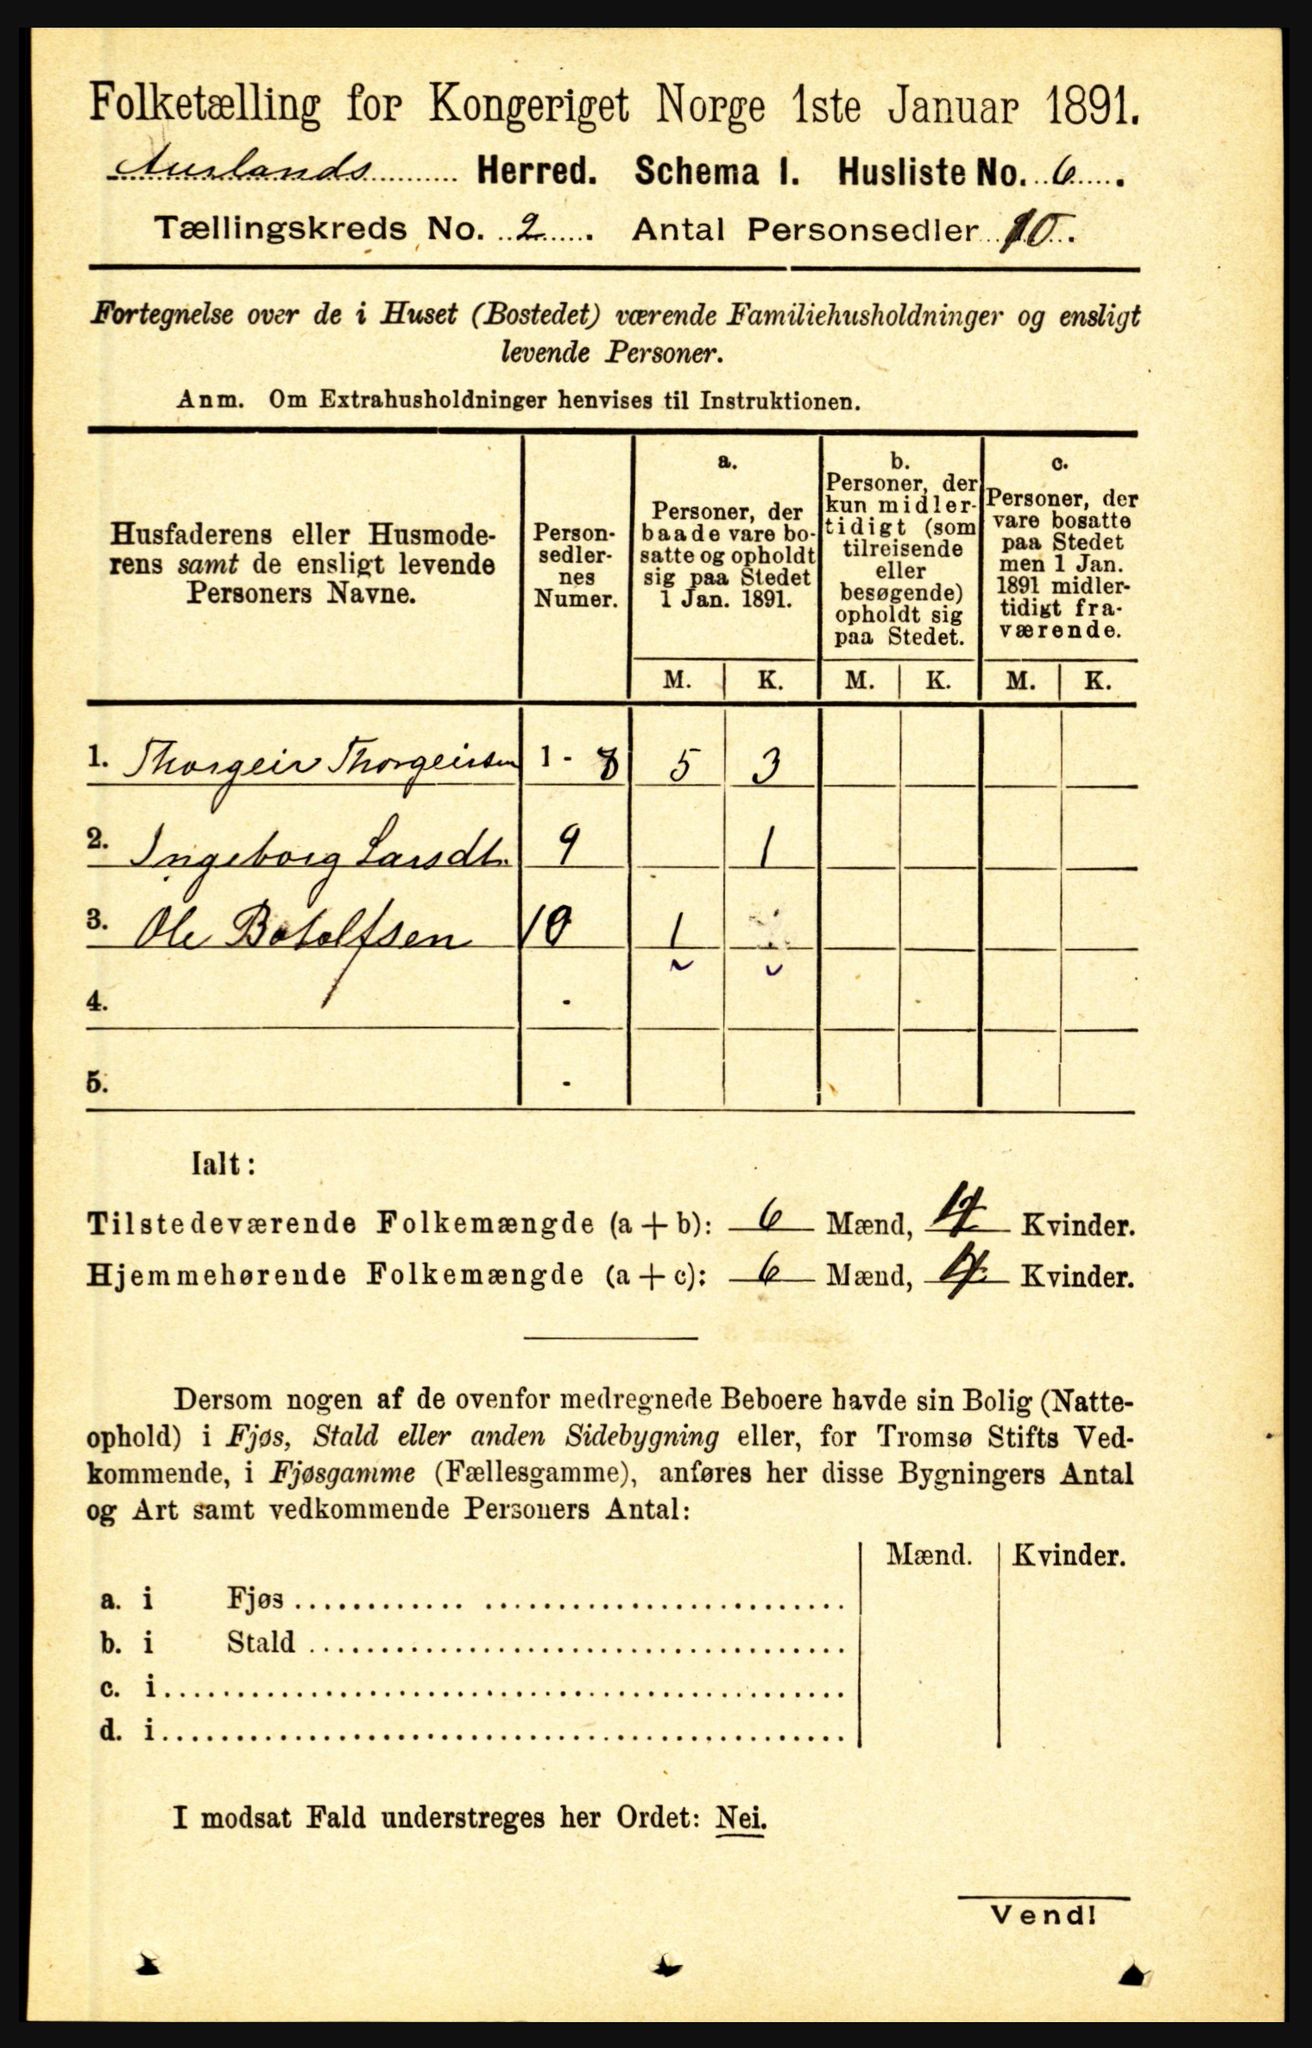 Folketælling for Kongeriget Norge 1ste Januar 1891.
Aurlands Herred. Schema 1. Husliste No. 6.
Tællingskreds No. 2. Antal Personsedler 10.
Fortegnelse over de i Huset (Bostedet) værende Familiehusholdninger og ensligt
levende Personer.
Anm. Om Extrahusholdninger henvises til Instruktionen.
Husfaderens eller Husmode-
rens samt de ensligt levende
Personers Navne.
Person-
sedler-
nes
Numer.
a.
Personer, der
baade vare bo-
satte og opholdt
sig paa Stedet
1 Jan. 1891.
b.
Personer, der
kun midler-
tidigt (som
tilreisende
eller
besøgende)
opholdt sig
paa Stedet.
c.
Personer, der
vare bosatte
paa Stedet
men 1 Jan.
1891 midler-
tidigt fra-
værende.
M. K. M. K. M. K.
1. Thorgeir Thorgeirsen 1 - 8 5 3
2. Ingeborg Larsdt. 9 1
3. Ole Botolfsen 10 1
4. -
5. -
Ialt:
Tilstedeværende Folkemængde (a + b): 6 Mænd, 4 Kvinder.
Hjemmehørende Folkemængde (a + c): 6 Mænd, 4 Kvinder.
Dersom nogen af de ovenfor medregnede Beboere havde sin Bolig (Natte-
ophold) i Fjøs, Stald eller anden Sidebygning eller, for Tromsø Stifts Ved-
kommende, i Fjøsgamme (Fællesgamme), anføres her disse Bygningers Antal
og Art samt vedkommende Personers Antal:
Mænd. Kvinder.
a. i Fjøs
b. i Stald
c. i
d. i
I modsat Fald understreges her Ordet: Nei.
Vend!